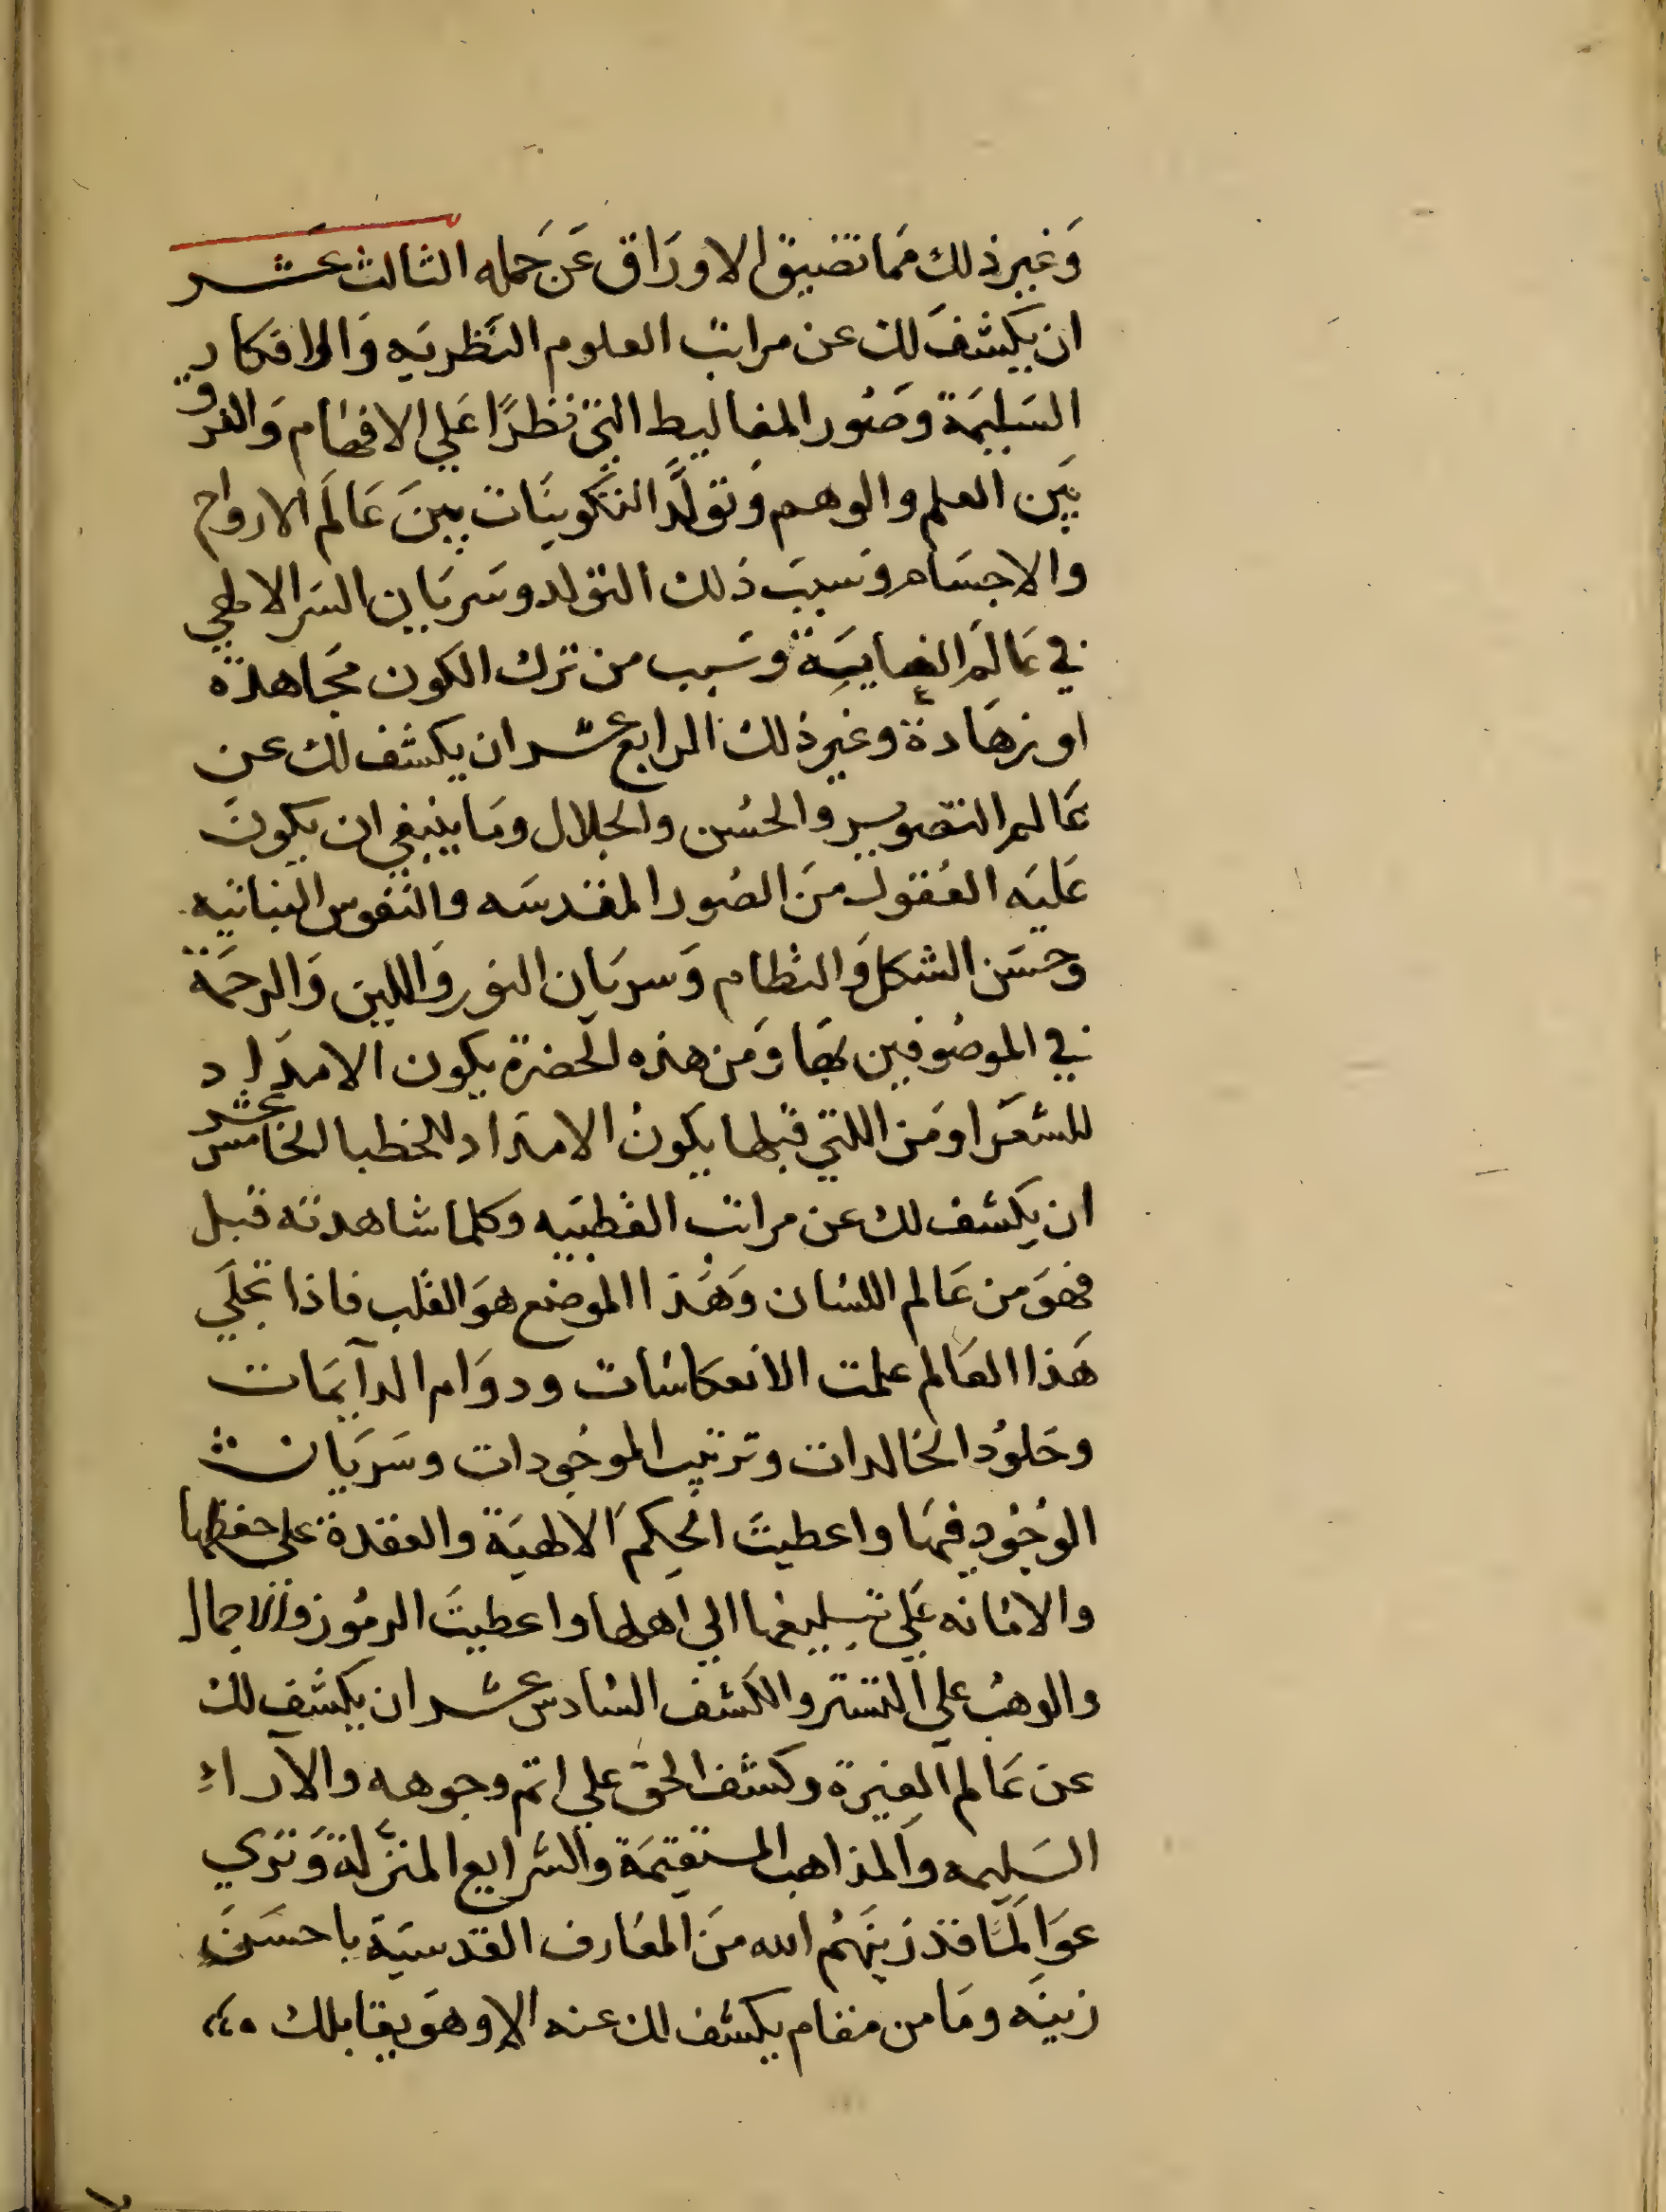 وَغير ذلك مَما تضيق الاورَاق عَن حَمله الثالث عَشر
ان يَكشفَ لك عن مراتب العلوم النَظريَه وَالافكار
السَليمَة وصُور المغاليط التي تطرًا عَلي الافهَام وَالفرق
بَين العلم والوهم وَتولّد التكوينَات بينَ عَالَم الارواح
والاجسَام وسببَ ذلك التولد وسَريَان السَر الالهي
في عَالَم العنايَة وسَبب من ترك الكون مجَاهدة
او زهَادة وغير ذلك الرابع عشر ان يكشف لك عن
عَالم التصوير والحسُن والجلال ومَا ينبغي ان يكونَ
عَليَه العُقول منَ الصُور المقدسَه والنفوس النباتيه
وحسَن الشكل وَالنظام وَسريَان النور وَاللين وَالرحمَة
في الموصُوفين بهَا وَمن هذه الحضرة يكون الامدَاد
للشعَرا ومَن اللتي قبلها يكونُ الامدَاد للخطبا الخامس عشر
ان يكشف لك عن مراتب القطبيَه وكلما شاهدته قبل
فهوَ من عَالم اللسَان وَهَذا الموضع هوَ القَلب فاذا تجَلَي
هَذا العَالم علمت الانعكاسَات ودوَام الدآيمَات
وخلوُد الخالدات وترتيب الموجُودات وسَريَان
الوُجُود فيهَا واعطيتَ الحِكم الالهيَة والقدرة علي حفظها
والامَانه عَلي تبليغها الي اهلها واعطيتَ الرمُوز والاجمال
والوهبُ علي التستر والكشف السَادس عشر ان يكشف لك
عن عَالم الغيرة وكشف الحق علي اتم وجوهه والآراءِ
السَليمه والمذاهب المستقيمَة والشرايع المنزَّلة وَتَري
عوَالمًا قد زينَهُم الله منَ المعَارف القدسيَة باحسَن
زينَه ومَا من مقام يكشف لك عنه الا وهوَ يقابلك